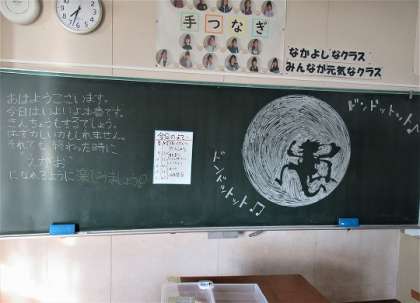 手つなぎ
なかよしなクラス
みんなが元気なクラス
おはようございます。
今日はいよいよ本番です。
きんちょうもするでしょう。
はずかしいかもしれません。
それでも、おわった時に
えがお
になれるように楽しみましょう♡
今日のよてい
ドンドットット♪
ドンドットット♫